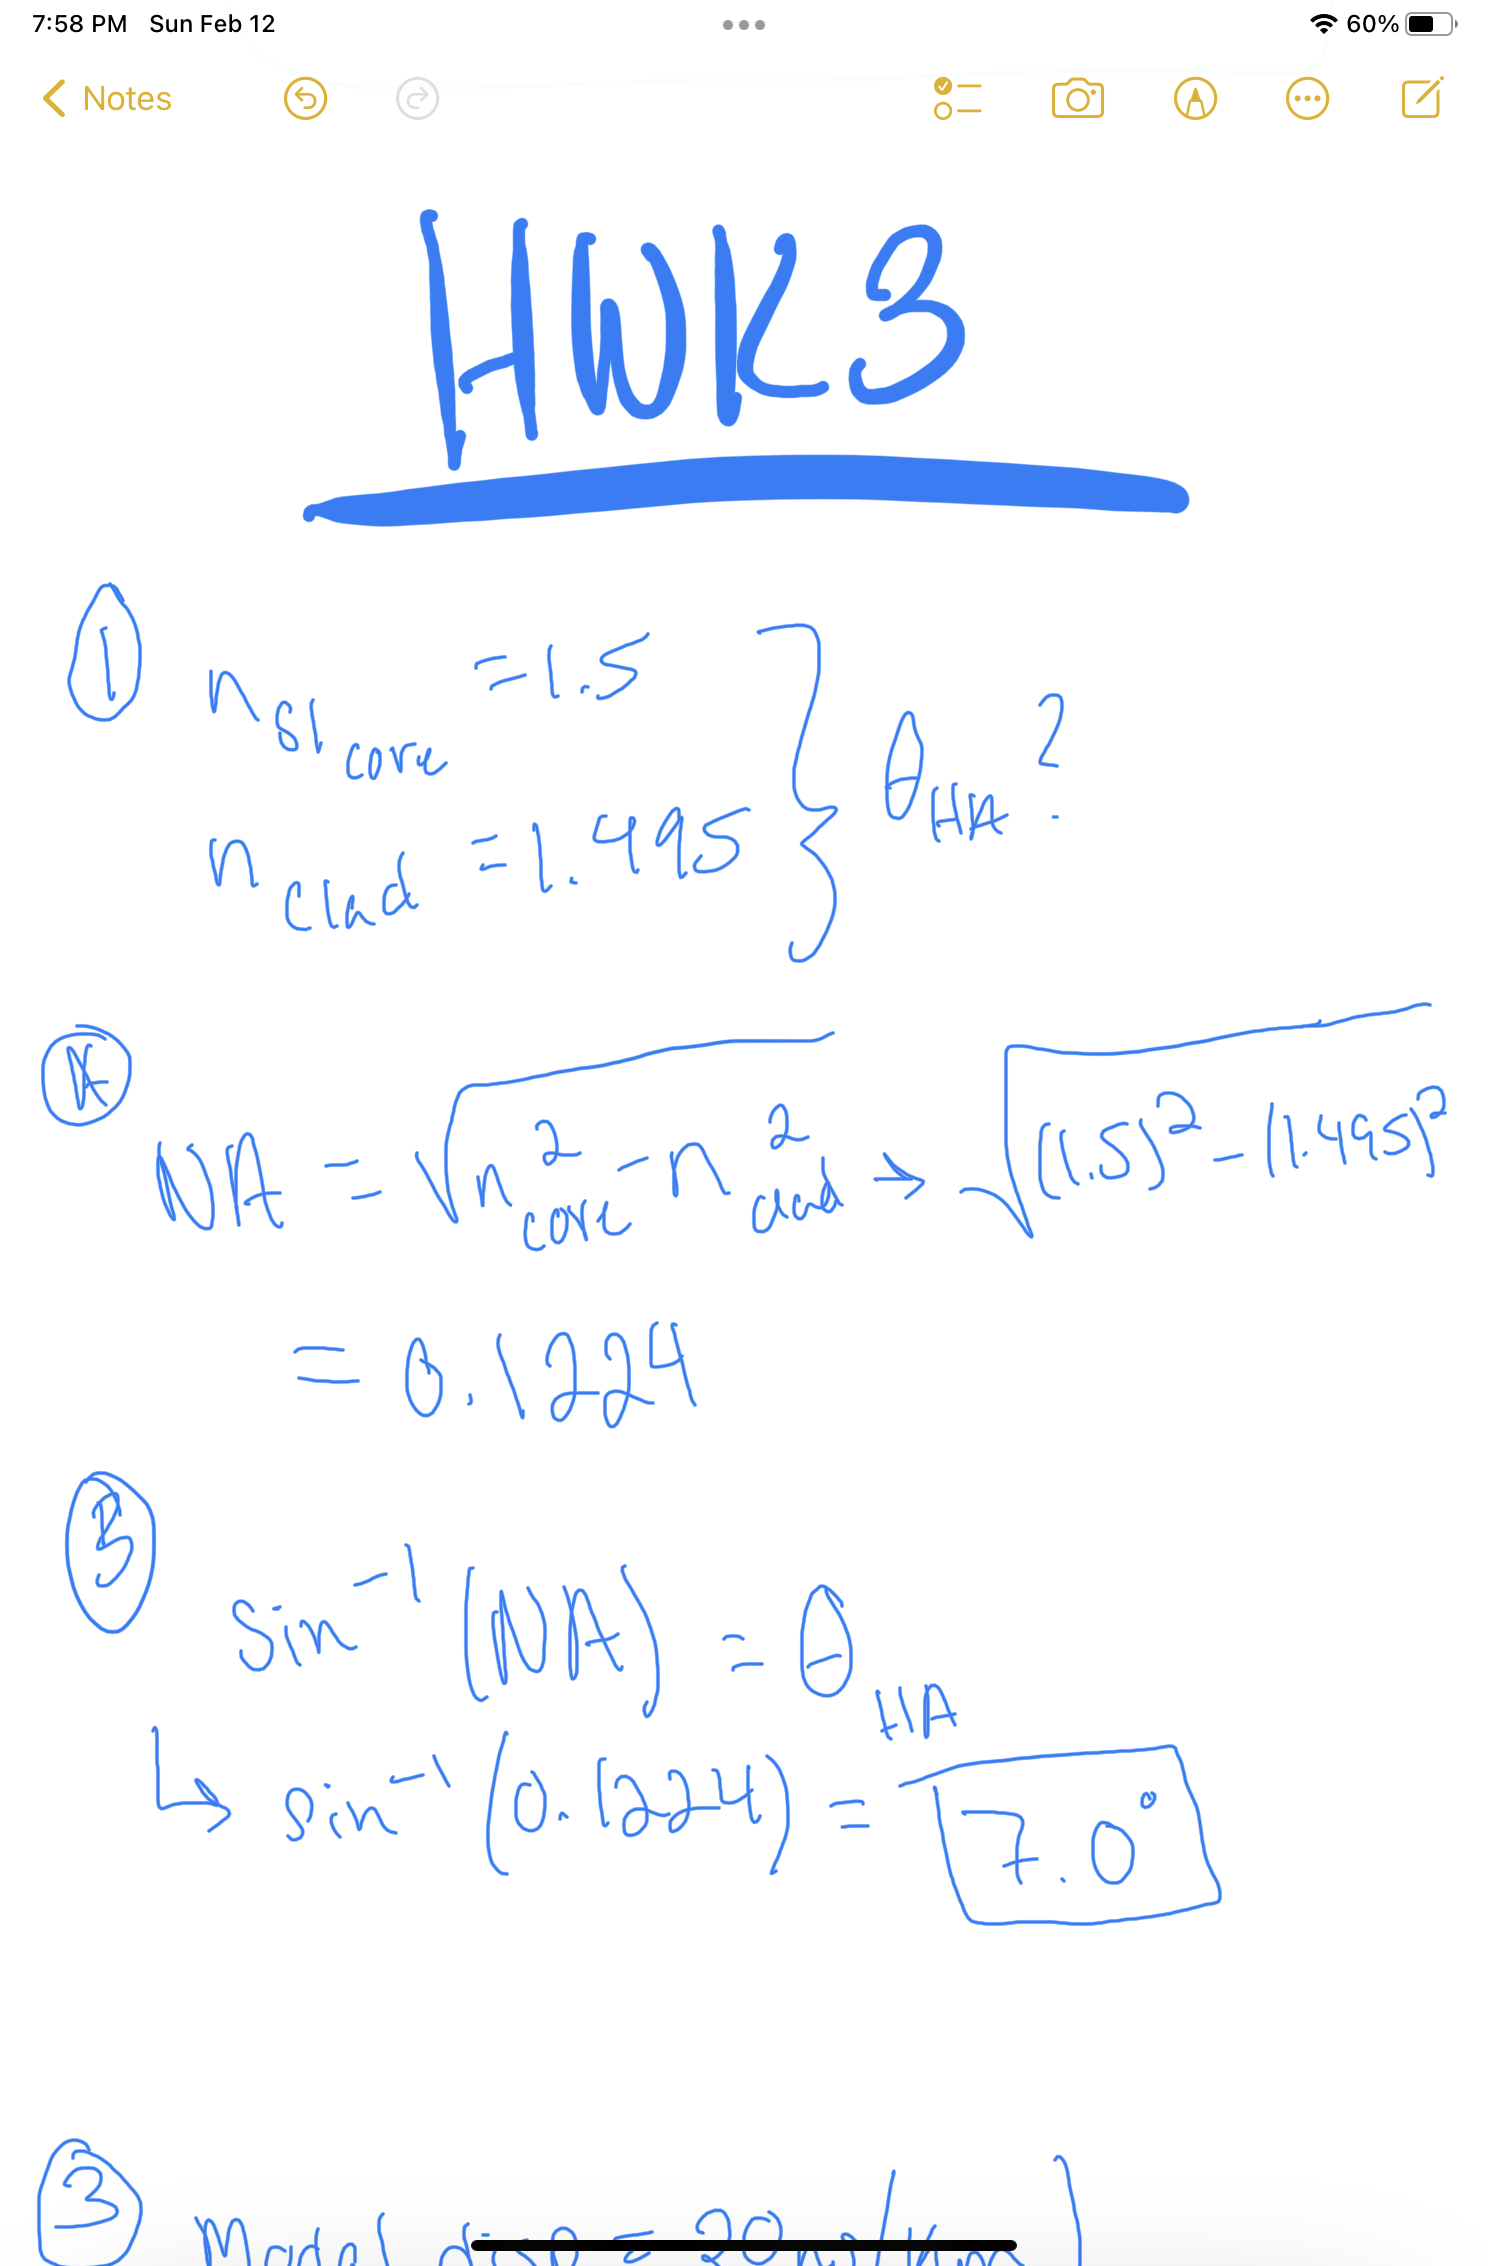 7:58 PM Sun Feb 12 60%
Notes
HWK3
① n_SI_core = 1.5
n_clad = 1.495 } θ_HA?
Ⓐ
NA = √(n²_core - n²_clad) → √((1.5)² - (1.495)²
= 0.1224
Ⓑ
sin⁻¹(NA) = θ_HA
↳ sin⁻¹(0.1224) = 7.0°
③ Modal disp = 20